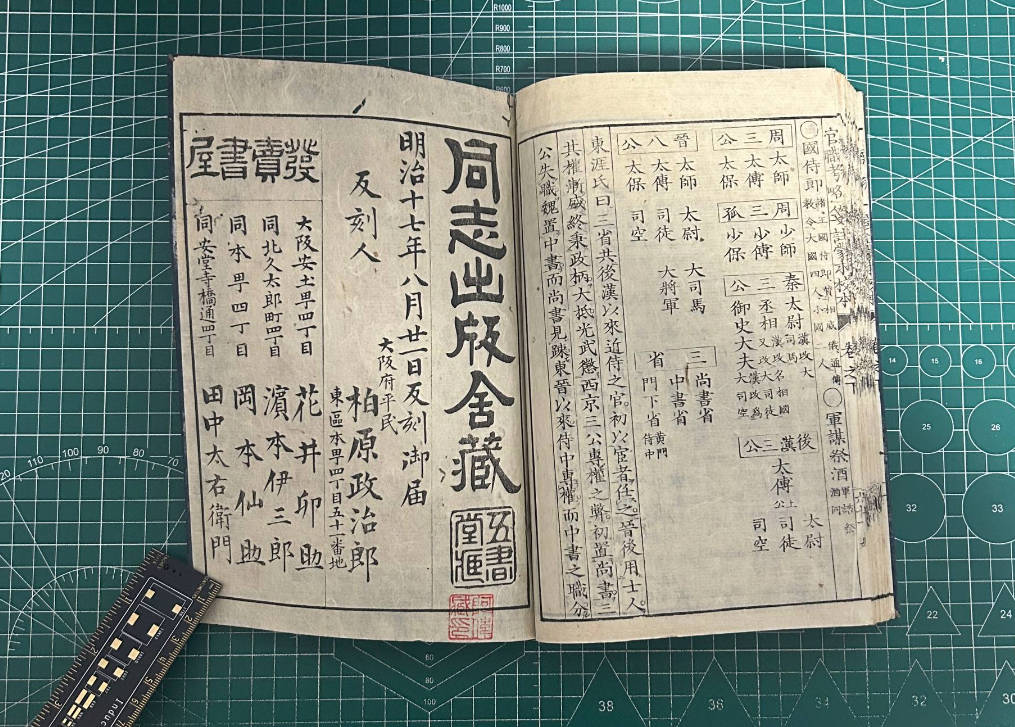 〇國侍郎
〇軍謀祭酒
周三公
太師
太傅
太保
周三孤
少師
少傅
少保
秦三公
太尉 漢改大司馬
丞相 漢改名相國又改大司徒
御史大夫 漢改爲大司空
後漢三公
太傅 上公
太尉
司徒
司空
晉八公
太師
太傅
太保
太尉
司徒
司空
大司馬
大將軍
三省
尚書省
中書省
門下省 黄門侍中
東涯氏曰三省共後漢以來近侍之官初以宦者任之晉後用士人
其權漸盛終秉政柄大抵光武懲西京三公專權之弊初置尚書三
公失職魏置中書而尚書見踈東晉以來侍中專權而中書之職分
同志出版舎藏
五書堂滙
明治十七年八月廿一日反刻御届
反刻人
大阪府平民
柏原政治郎
東區本町四丁目五十一番地
發賣書屋
大阪安土町四丁目 花井卯助
同北久太郎町四丁目 濵本伊三郎
同本町四丁目 岡本仙助
同安堂寺橋通四丁目 田中太右衛門